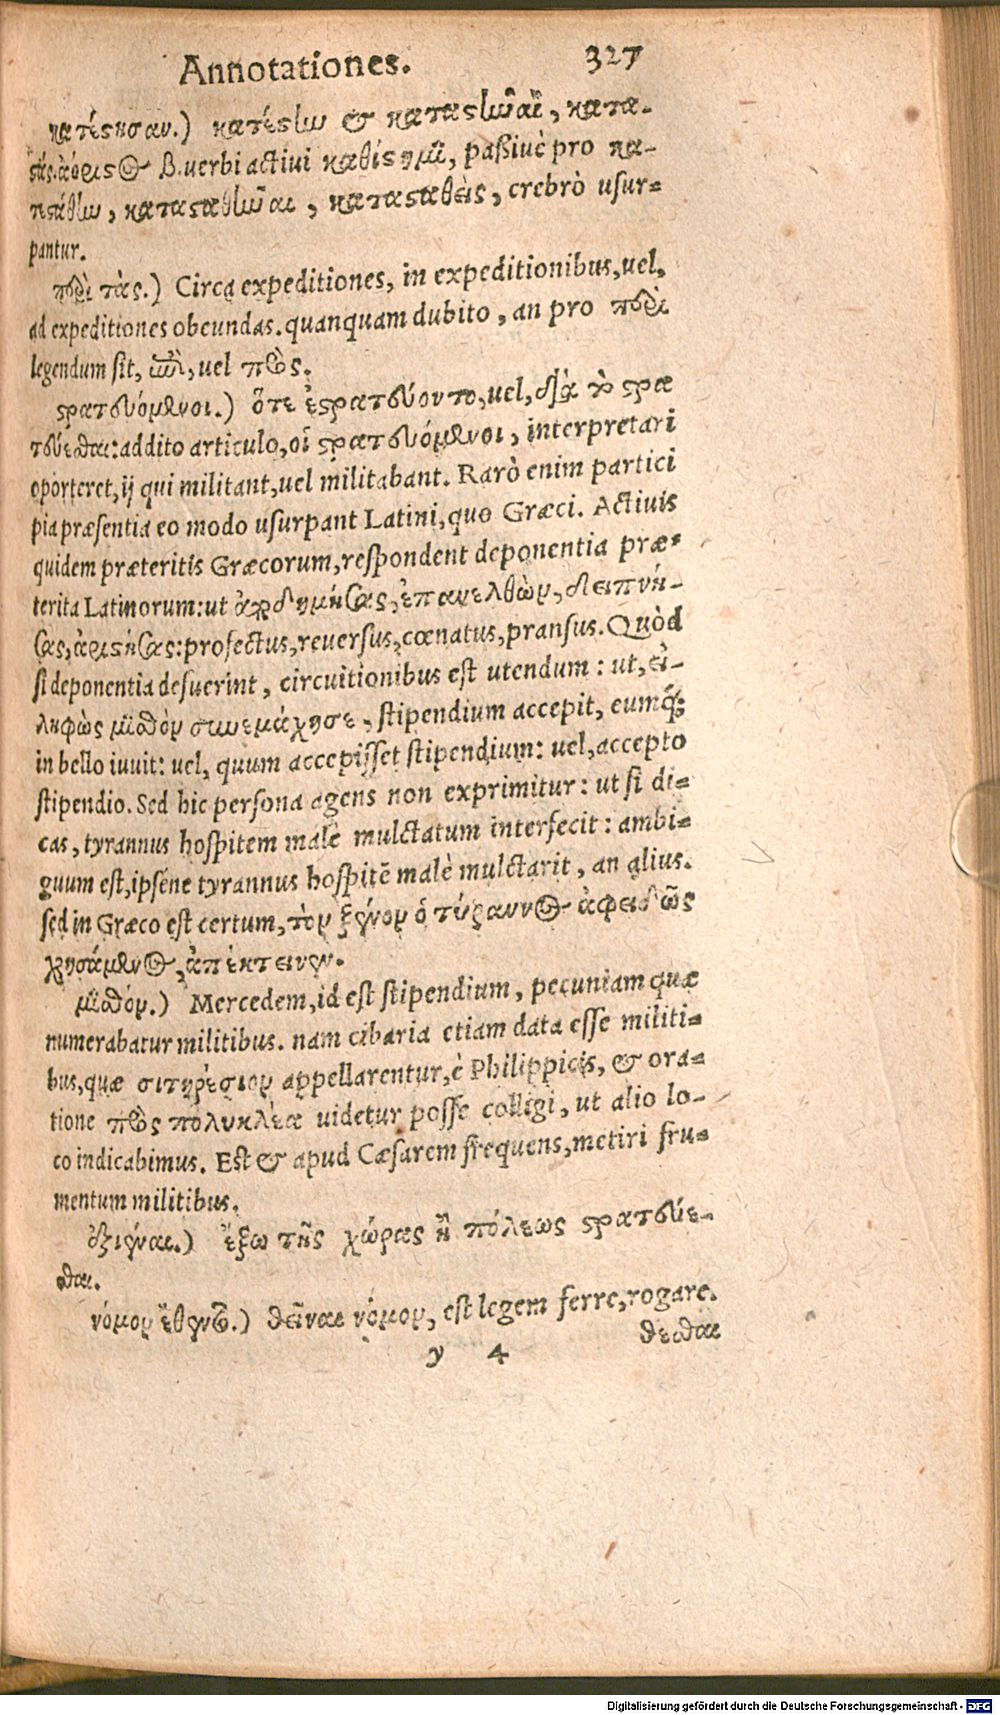 Annotationes. 327
κατέστησαν.) κατέστην & καταστῆναι, κατα-
στάς. ἀόριστος β. uerbi actiui καθίστημι, paßiuè pro κα-
τεστάθην, κατασταθῆναι, κατασταθεὶς, crebrò usur-
pantur.
περὶ τὰς.) Circa expeditiones, in expeditionibus, uel,
ad expeditiones obeundas. quanquam dubito, an pro περὶ
legendum sit, ἐπὶ, uel πρὸς.
στρατευόμενοι.) ὅτε ἐστρατεύοντο, uel, διὰ τὸ στρα
τεύεσθαι: addito articulo, οἱ στρατευόμενοι, interpretari
oporteret, ij qui militant, uel militabant. Rarò enim partici
pia præsentia eo modo usurpant Latini, quo Græci. Actiuis
quidem præteritis Græcorum, respondent deponentia præ-
terita Latinorum: ut ἀποδημήσας, ἐπανελθὼν, δειπνή-
σας, ἀριστήσας: profectus, reuersus, cœnatus, pransus. Quòd
si deponentia defuerint, circuitionibus est utendum: ut, εἰ-
ληφὼς μισθὸν συνεμάχησε, stipendium accepit, eumq́;
in bello iuuit: uel, quum accepisset stipendium: uel, accepto
stipendio. Sed hic persona agens non exprimitur: ut si di-
cas, tyrannus hospitem malè mulctatum interfecit: ambi-
guum est, ipséne tyrannus hospitē malè mulctarit, an alius.
sed in Græco est certum, τὸν ξένον ὁ τύραννος ἀφειδῶς
χρησάμενος, ἀπέκτεινεν.
μισθόν.) Mercedem, id est stipendium, pecuniam quæ
numerabatur militibus. nam cibaria etiam data esse militi-
bus, quæ σιτηρέσιον appellarentur, è Philippicis, & ora-
tione πρὸς πολυκλέα uidetur posse colligi, ut alio lo-
co indicabimus. Est & apud Cæsarem frequens, metiri fru-
mentum militibus.
ἐξιέναι.) ἔξω τῆς χώρας ἢ πόλεως στρατεύε-
σθαι.
νόμον ἔθεντο.) θεῖναι νόμον, est legem ferre, rogare.
θεσθαι
y 4
Digitalisierung gefördert durch die Deutsche Forschungsgemeinschaft - DFG